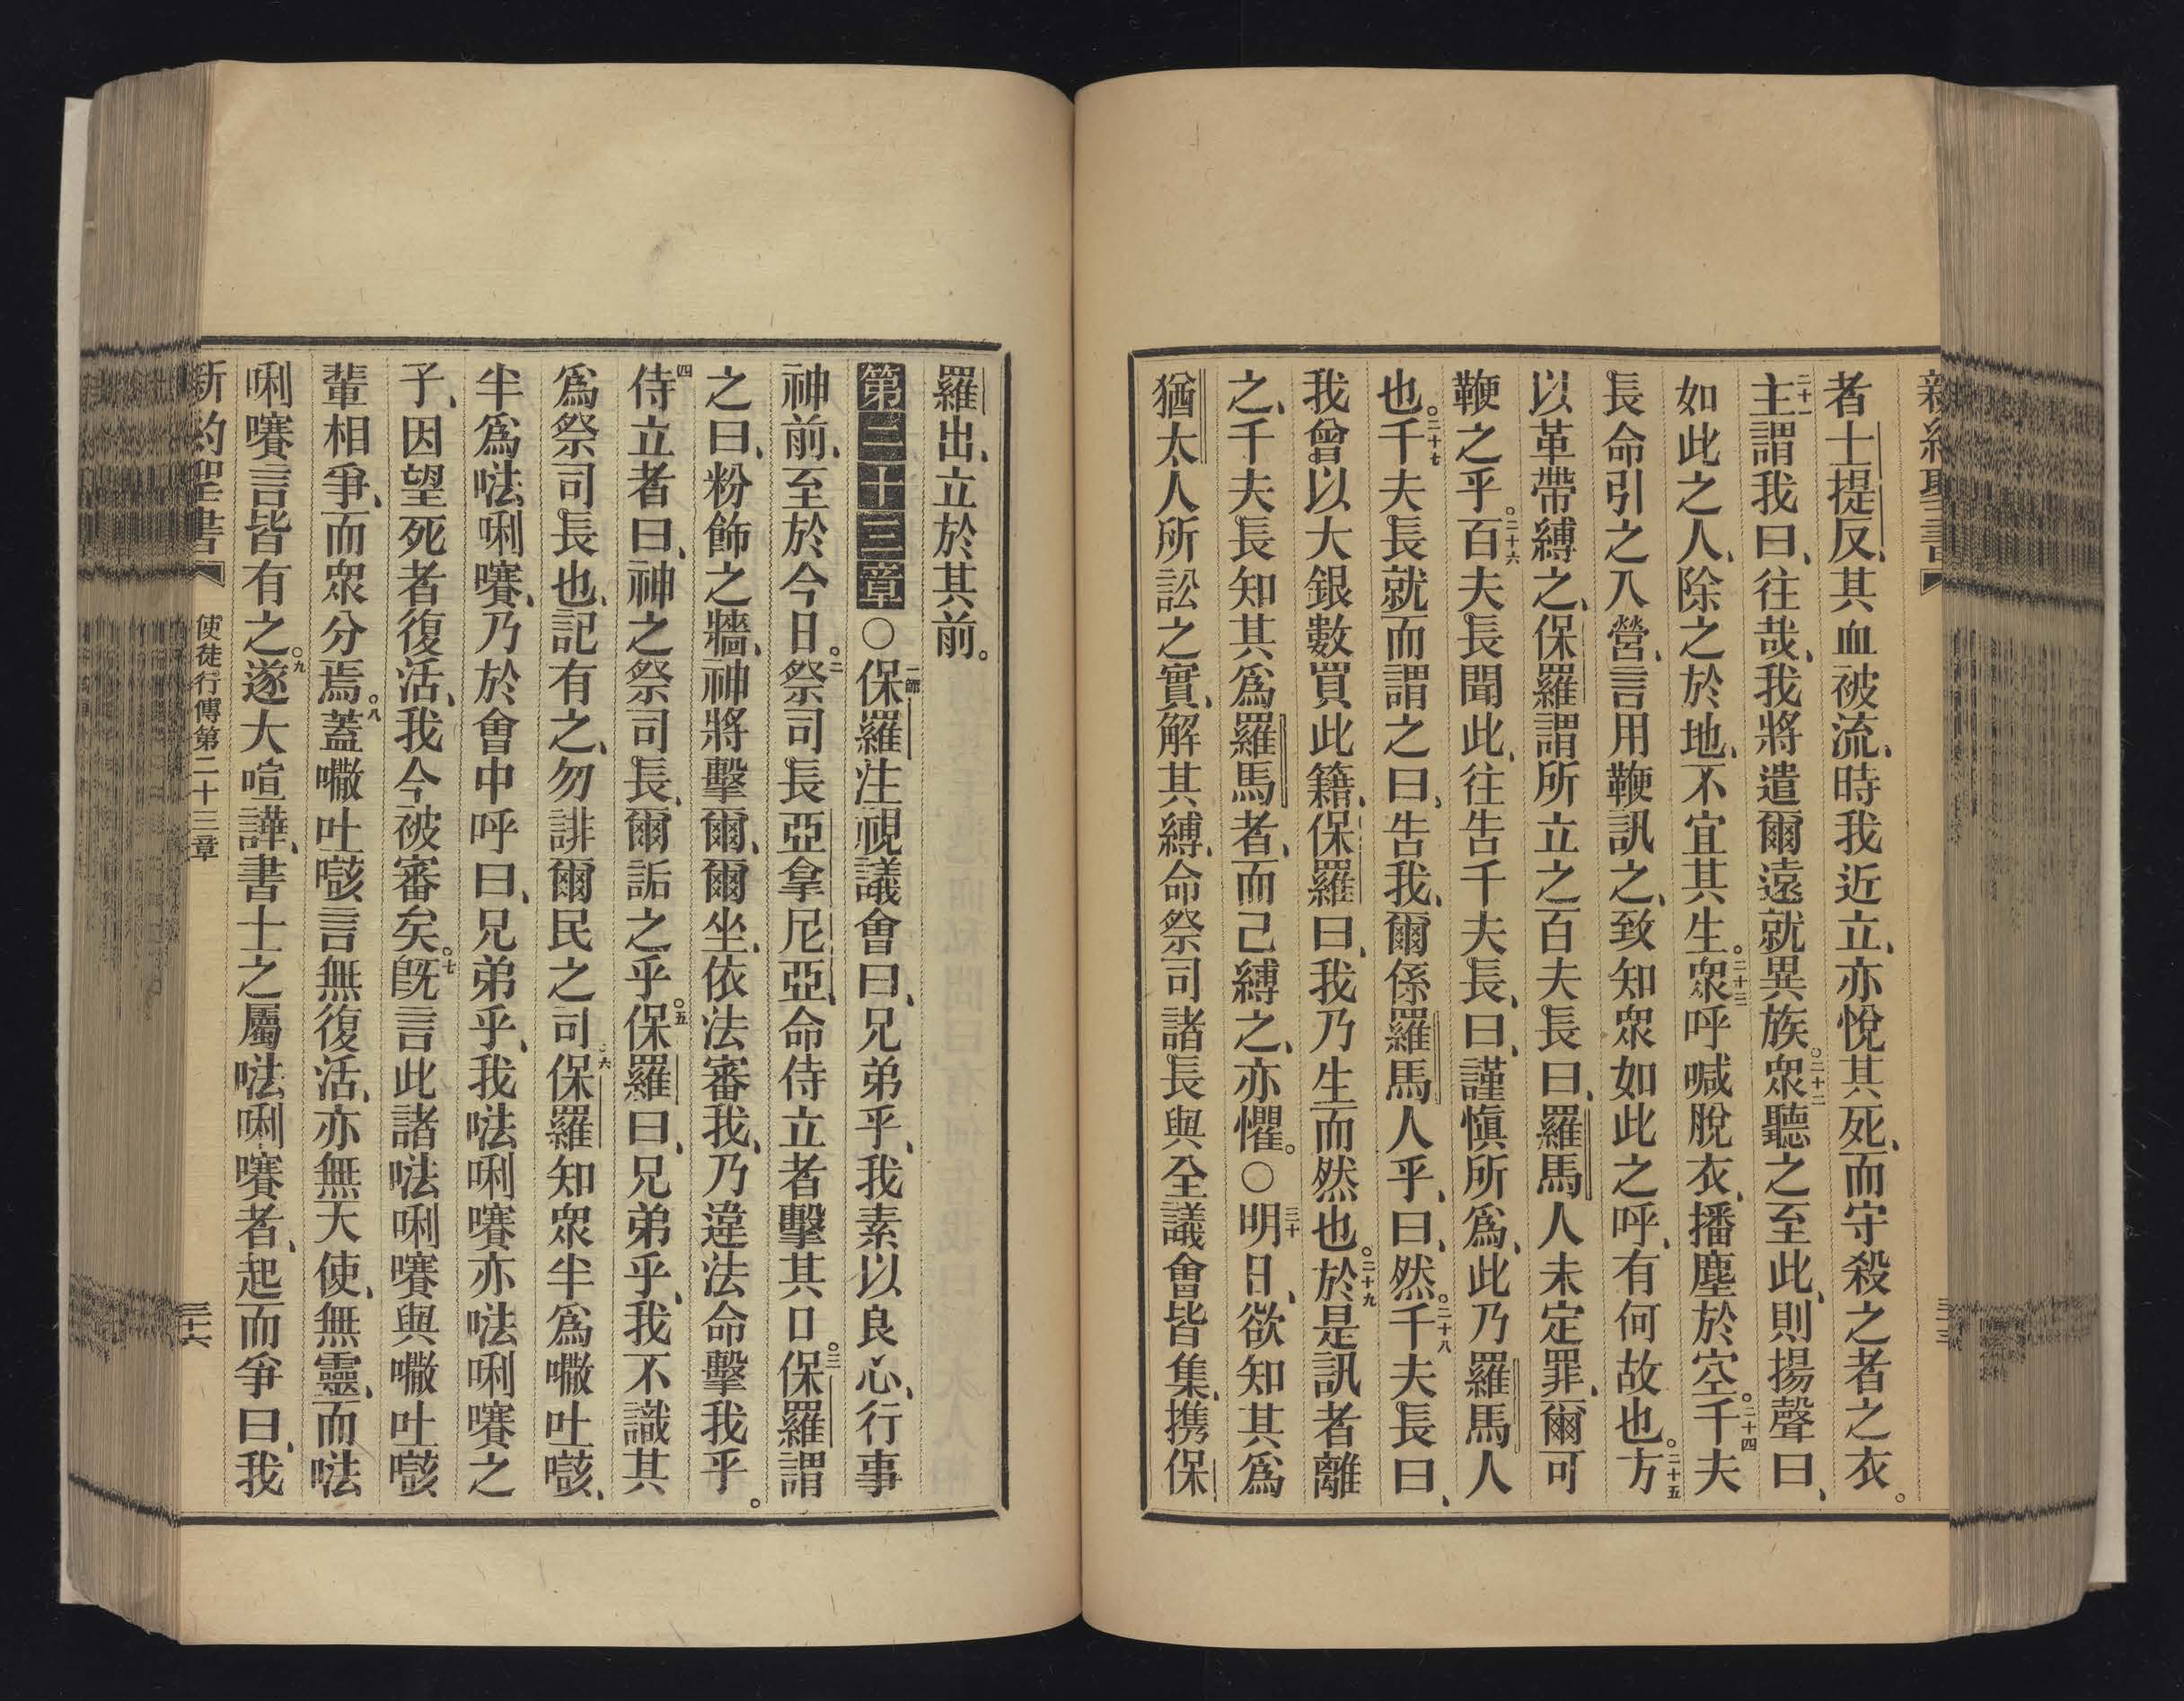 新約聖書
者士提反、其血被流、時我近立、亦悅其死、而守殺之者之衣。
二十一主謂我曰、往哉、我將遣爾遠就異族。二十二衆聽之至此、則揚聲曰、
如此之人、除之於地、不宜其生。二十三衆呼喊脫衣、播塵於空。二十四千夫
長命引之入營、言用鞭訊之、致知衆如此之呼、有何故也。二十五方
以革帶縛之、保羅謂所立之百夫長曰、羅馬人未定罪、爾可
鞭之乎。二十六百夫長聞此、往告千夫長、曰、謹愼所爲、此乃羅馬人
也。二十七千夫長就而謂之曰、告我、爾係羅馬人乎、曰、然。二十八千夫長曰、
我曾以大銀數買此籍、保羅曰、我乃生而然也。二十九於是訊者離
之、千夫長知其爲羅馬者、而己縛之、亦懼。○三十明日、欲知其爲
猶太人所訟之實、解其縛、命祭司諸長與全議會皆集、携保
羅出、立於其前。
第二十三章○一節保羅注視議會曰、兄弟乎、我素以良心、行事
神前、至於今日。二祭司長亞拿尼亞、命侍立者擊其口。三保羅謂
之曰、粉飾之牆、神將擊爾、爾坐、依法審我、乃違法命擊我乎。
四侍立者曰、神之祭司長、爾詬之乎。五保羅曰、兄弟乎、我不識其
爲祭司長也、記有之、勿誹爾民之司六保羅知衆半爲𠻳吐㗡、
半爲㕸唎㘔、乃於會中呼曰、兄弟乎、我㕸唎㘔亦㕸唎㘔之
子、因望死者復活、我今被審矣。七旣言此諸㕸唎㘔與𠻳吐㗡
輩相爭、而衆分焉。八蓋𠻳吐㗡言無復活、亦無天使、無靈、而㕸
唎㘔言皆有之。九遂大喧譁、書士之屬㕸唎㘔者、起而爭曰、我
新約聖書 使徒行傳第二十三章 三十六